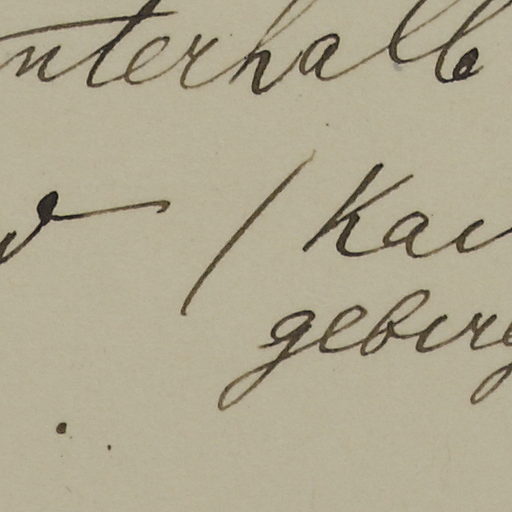 nterhalb
/ Kai
gebirg